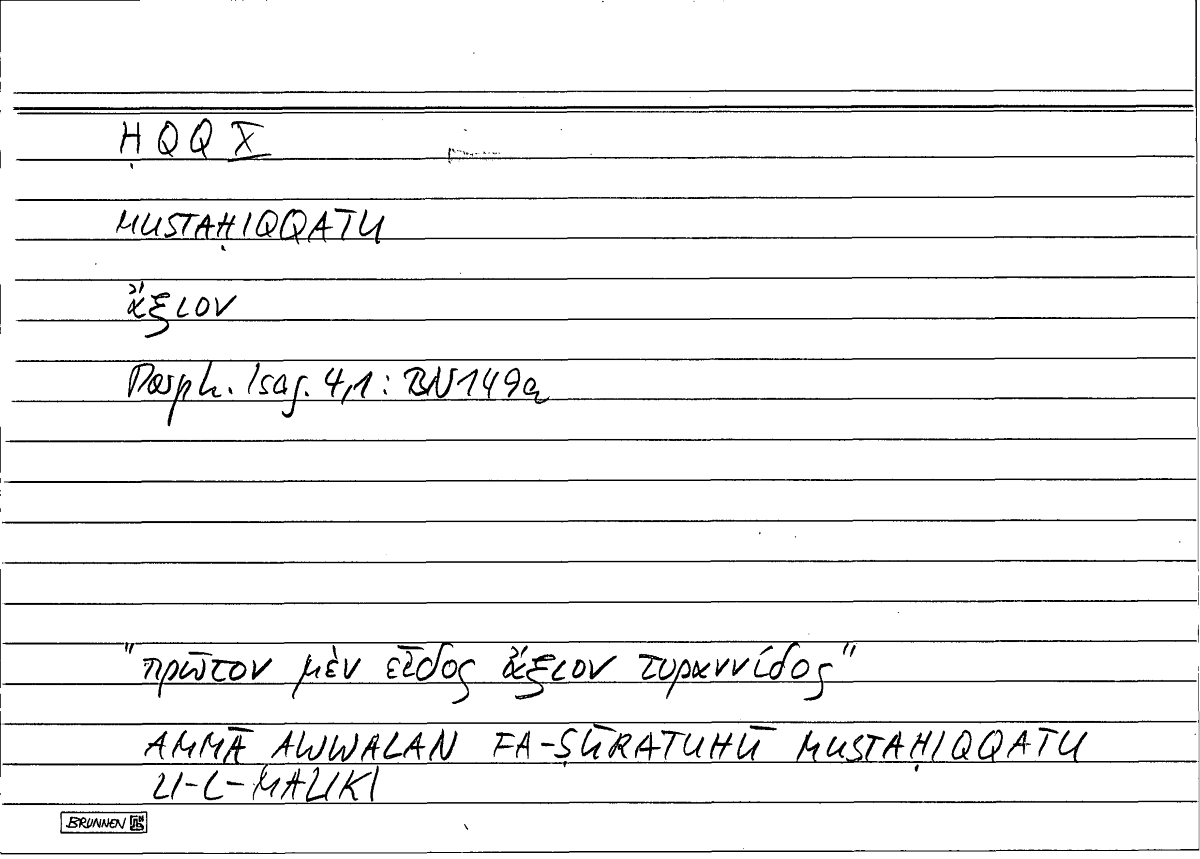 ḤQQ X
MUSTAḤIQQATU
ἄξιον
Porph. Isag. 4,1 : BN 149a
"πρῶτον μὲν εἶδος ἄξιον τυραννίδος"
AMMĀ AWWALAN FA-ṢŪRATUHŪ MUSTAḤIQQATU
LI-L-MALIKI
BRUNNEN